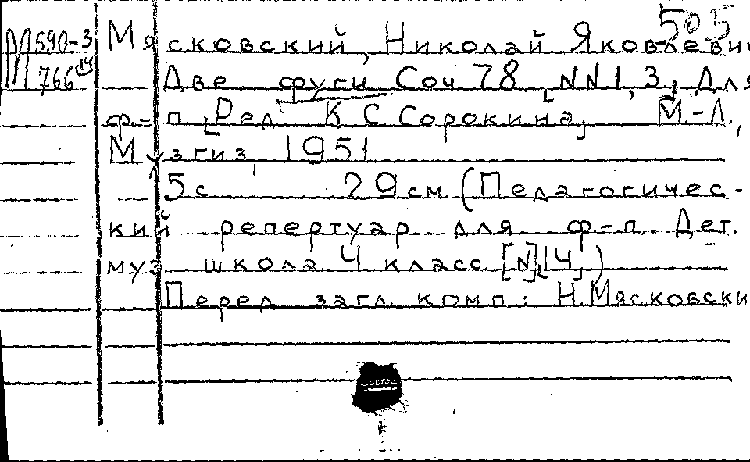 505
М 590-3 Мясковский, Николай Яковлеви
766 Две фуги Соч 78, NN 1, 3, Для
ф-п, Ред. К С Сорокина, М.-Л.,
Музгиз, 1951
5с 29см (Педагогичес-
кий репертуар для ф-п Дет.
муз школа 4 класс [N] 14,)
Перед загл. комп: Н.Мясковски